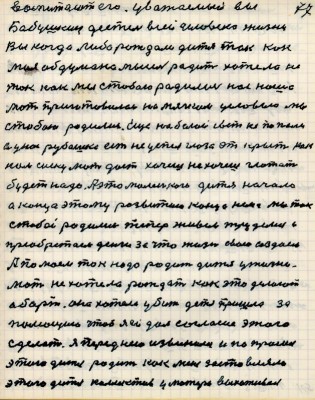 воспитают его. уважаемый вы 77
Бабушкин детей всей человека жизни
Вы когда либо рождали дитя так как
моя обдумана родить хотела не
так как мы с тобою родились нас наша
мать приготовилась на мягкая целовала мы
с тобою родились. Еще на белой свет не попали
а у нас рубашка есть не успел глаза от крыть нам
кашу мать дает хочеш не хочеш глотать
будет надо. А это маленького дитя начало
а конца этому развитию конца нема мы так
с тобой родились теперь живем трудимся
приобретаем деньги за что жизнь свою создаем
А по моему так надо родит дитя
мать не хотела рождать как это делают
аборт. она хотела убит дитя пришла за
помощию чтоб я ей дал согласие этого
сделат. Я перед нею извинился и по просил
этого дитя родит как мы заставляло
этого дитя коллектив у матери